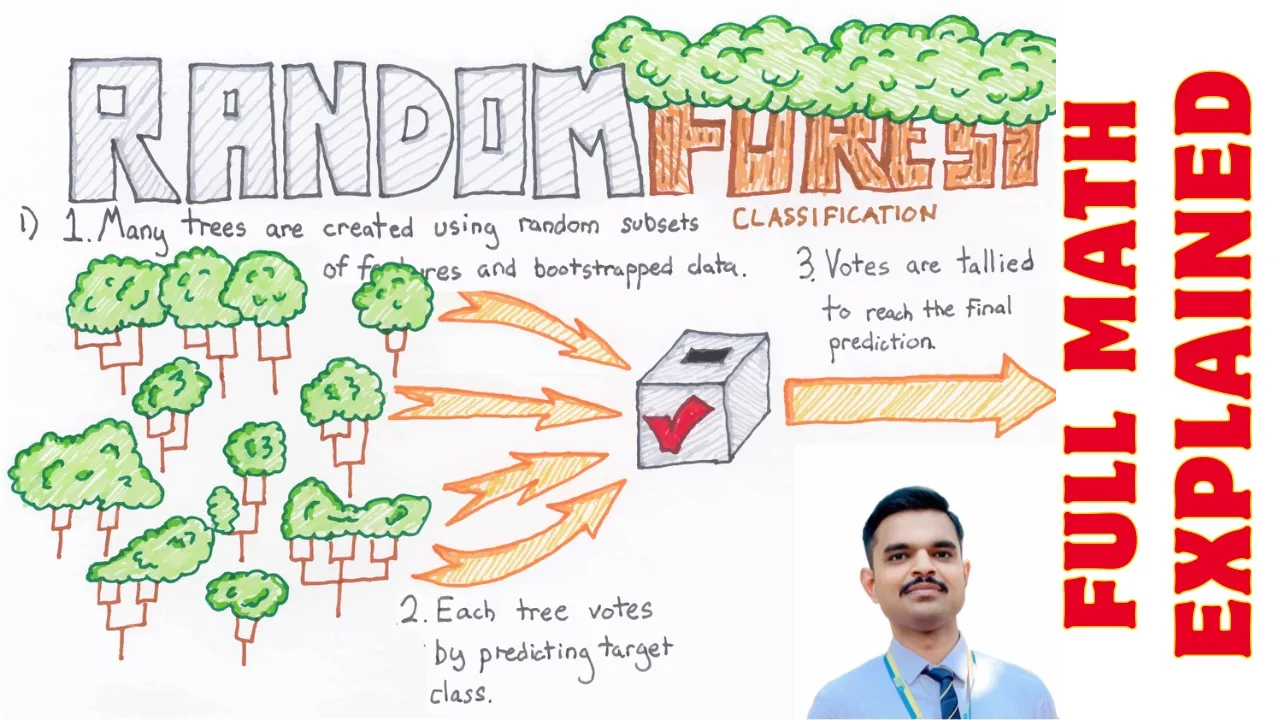 RANDOM FOREST
CLASSIFICATION
1) 1. Many trees are created using random subsets
of features and bootstrapped data.
3. Votes are tallied
to reach the final
prediction.
2. Each tree votes
by predicting target
class.
FULL MATH
EXPLAINED